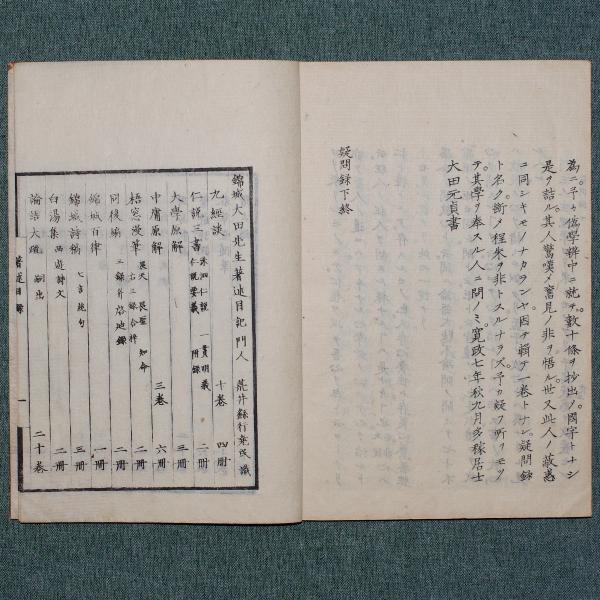 為ニ予カ信學辨中ニ就テ數十條ヲ抄出ノ國字トナシ
是ヲ詰ル其人驚嘆ノ舊見ノ非ヲ悟ル世又此人ノ蔵惑
ニ同シキモノナカランヤ因テ輯テ一卷トナシ疑問録
ト名ク斷ノ程朱ヲ非トスルナラズ予カ疑フ所ヲモツ
テ其學ヲ奉スル人ニ問ノミ寛政七年秋九月多稼居士
大田元貞書
疑問録下終
錦城大田先生著述目記 門人 荒井繇行堯民識
九經談 十卷 四冊
仁説三書 洙泗仁説 一貫明義 仁説要義 附録 二冊
大學原解 三冊
中庸原解 三卷 六冊
梧窓漫筆 二冊
同後編 二冊
錦城百律 一冊
錦城詩稿 七言絶句 三冊
白湯集 西遊詩文 二冊
論語大疏 嗣出 二十卷
著述目録 一